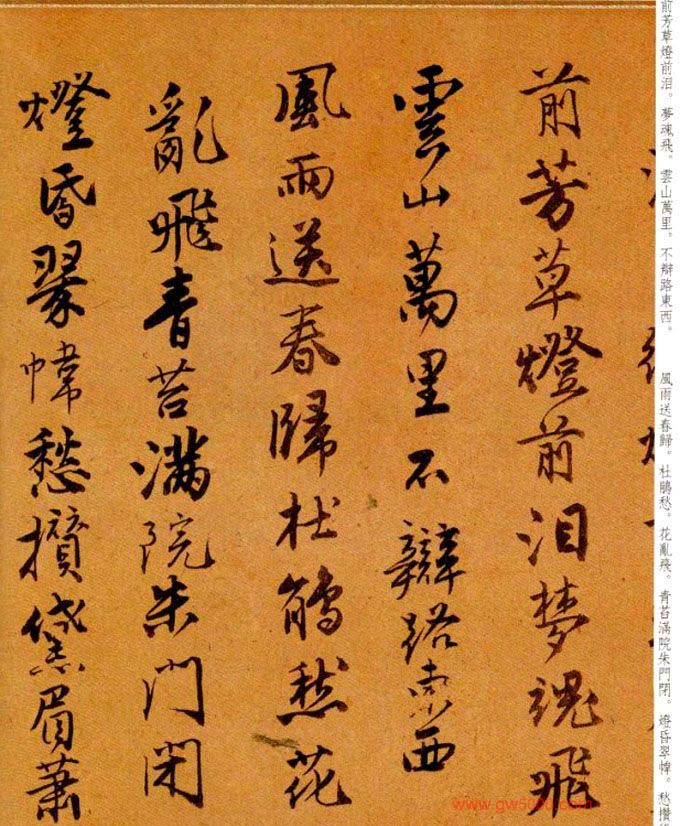 前芳草燈前泪。夢魂飛。雲山萬里。不辯路東西。
風雨送春歸。杜鵑愁。花亂飛。青苔滿院朱門閉。燈昏翠幃。愁攢
前芳草燈前泪梦魂飛
雲山萬里不辯路東西
風雨送春歸杜鵑愁花
亂飛青苔满院朱門閉
燈昏翠幃愁攢黛眉蕭